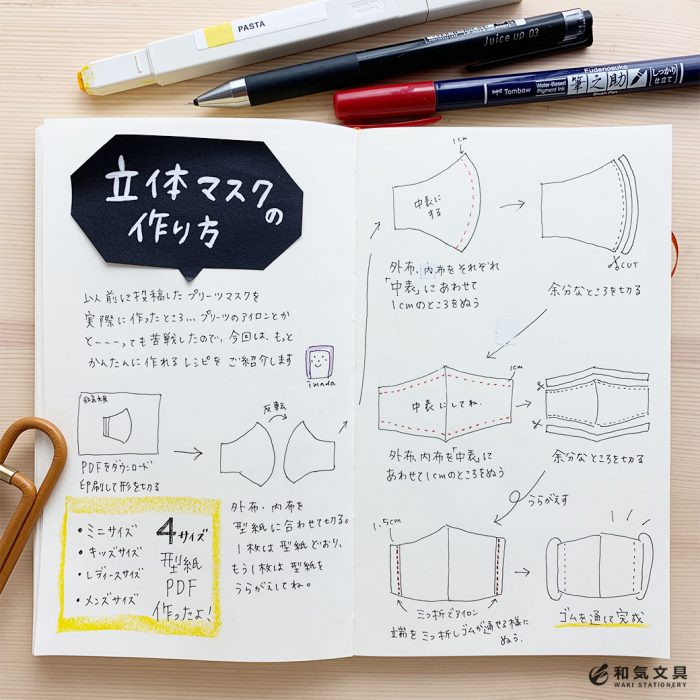 PASTA
Juice up 03
Eudenosuke
Tombow
Water-Based
Pigment Ink
筆之助
Brush Pen
しっかり
仕立て
立体マスクの
作り方
以前に投稿したプリーツマスクを
実際に作ったところ... プリーツのアイロンとか
とーーーっても苦戦したので、今回は、もっと
かんたんに作れるレシピをご紹介します
imada
PDFをダウンロード
印刷して形を切る
反転
外布・内布を
型紙に合わせて切る。
1枚は型紙どおり、
もう1枚は型紙を
うらがえしてね。
・ミニサイズ
・キッズサイズ
・レディースサイズ
・メンズサイズ
4サイズ
型紙
PDF
作ったよ!
1cm
中表に
する
外布、内布をそれぞれ
「中表」にあわせて
1cmのところをぬう
CUT
余分なところを切る
1cm
中表にしてね.
外布、内布を「中表」に
あわせて1cmのところをぬう
余分なところを切る
うらがえす
1.5cm
三つ折でアイロン
端を三つ折しゴムが通せる様に
ぬう.
ゴムを通して完成
和気文具
WAKI STATIONERY